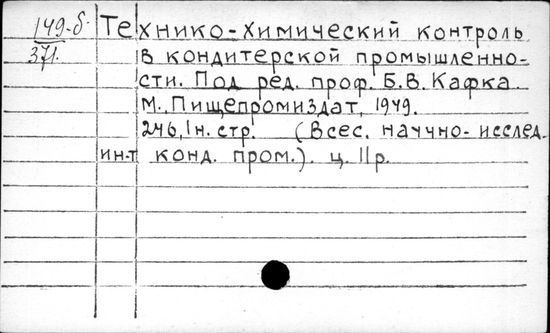 149-б
371.
Технико-химический контроль
в кондитерской промышленно-
сти. Под ред. проф. Б.В. Кафка
М., Пищепромиздат, 1949.
246, 1н. стр. (Всес. научно-исслед.
ин-т конд. пром.). ц. 11р.